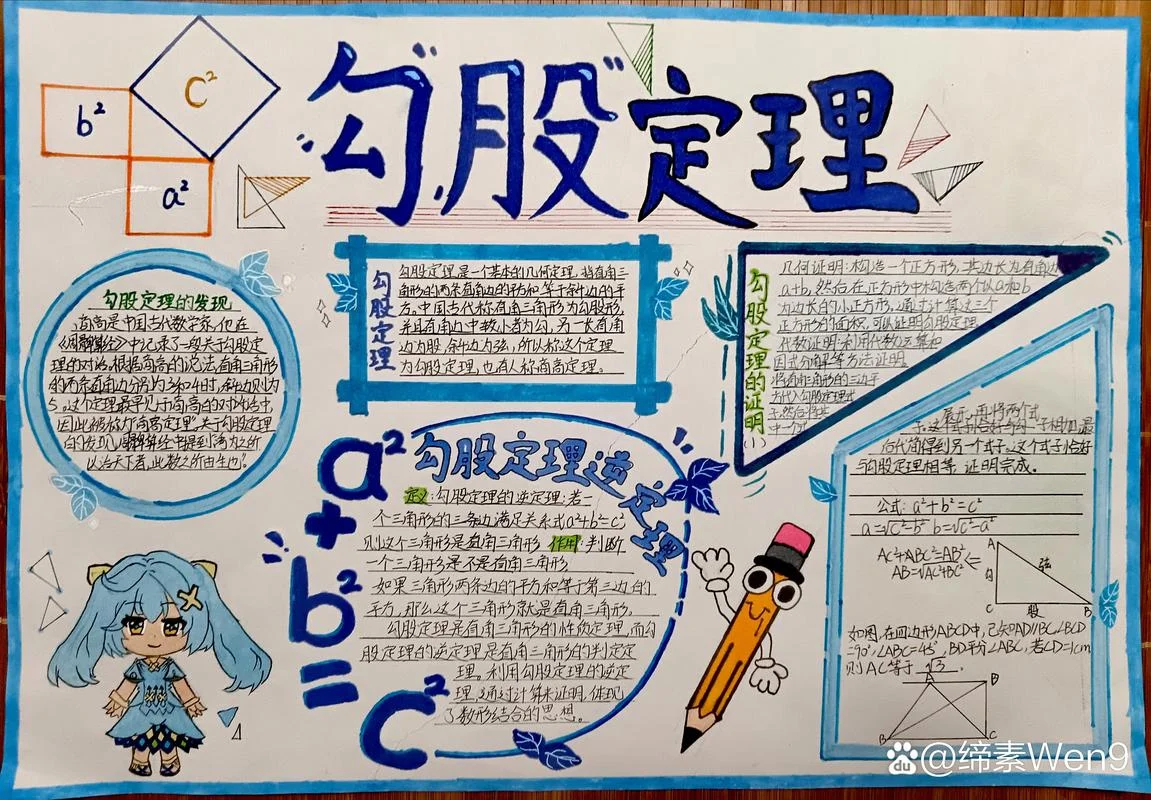 勾股定理
b²
c²
a²
勾股定理的发现
商高是中国古代数学家,他在
《周髀算经》中记录了一段关于勾股定
理的对话。根据商高的说法,直角三角形
的两条直角边分别为3和4时,斜边则为
5。这个定理最早见于商高的对话中,
因此被称为"商高定理"。关于勾股定理
的发现,周髀算经中提到:"禹之所
以治天下者,此数之所由生也"
勾股定理
勾股定理,是一个基本的几何定理,指直角三
角形的两条直角边的平方和等于斜边的平
方。中国古代称直角三角形为勾股形,
并且直角边中较小者为勾,另一长直角
边为股,斜边为弦,所以称这个定理
为勾股定理,也有人称商高定理。
勾股定理的证明
(1)
几何证明:构造一个正方形,其边长为直角边
a+b,然后在正方形中构造两个以a和b
为边长的小正方形,通过计算这三个
正方形的面积,可以证明勾股定理
代数证明:利用代数运算和
因式分解等方法证明。
将直角三角形的三边平
方代入勾股定理式
子,然后将其
中一个式
展开,再将两个式
子相加,最
后代简得到另一个式子。这个式子恰好
与勾股定理相等,证明完成。
公式:a²+b²=c²
a=√c²-b² b=√c²-a²
AC²+BC²=AB²
AB=√AC²+BC²
A
勾
弦
C
股
B
如图,在四边形ABCD中,已知AD∥BC,∠BCD
=90°,∠ABC=45°,BD平分∠ABC,若CD=1cm
则AC等于√3.
A
D
B
C
a²+b²=c²
勾股定理逆定理
定义:勾股定理的逆定理:若一
个三角形的三条边满足关系式a²+b²=c²
则这个三角形是直角三角形 作用:判断
一个三角形是不是直角三角形
如果三角形两条边的平方和等于第三边的
平方,那么这个三角形就是直角三角形。
勾股定理是直角三角形的性质定理,而勾
股定理的逆定理是直角三角形的判定定
理。利用勾股定理的逆定
理,通过计算来证明,体现
了数形结合的思想。
@缔素Wen9